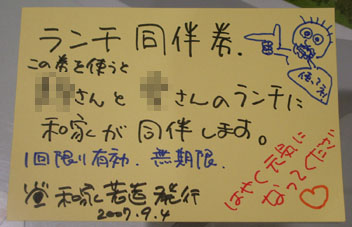 ランチ同伴券.
この券を使うと
さんと さんのランチに
和家が同伴します。
1回限り有効. 無期限.
和家若造発行
2007.9.4
使ってネ
はやく元気に
なってくださ